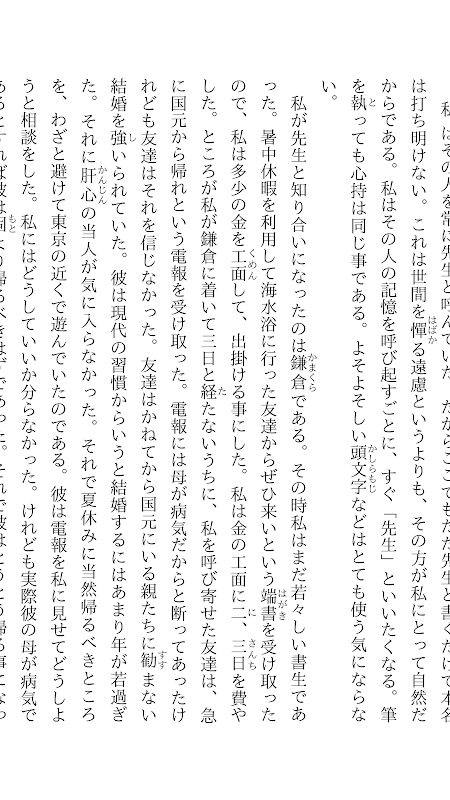 私はその人を常に先生と呼んでいた。だからここでもただ先生と書くだけで本名
は打ち明けない。これは世間を憚る遠慮というよりも、その方が私にとって自然だ
からである。私はその人の記憶を呼び起すごとに、すぐ「先生」といいたくなる。筆
を執っても心持は同じ事である。よそよそしい頭文字などはとても使う気にならな
い。
私が先生と知り合いになったのは鎌倉である。その時私はまだ若々しい書生であ
った。暑中休暇を利用して海水浴に行った友達からぜひ来いという端書を受け取った
ので、私は多少の金を工面して、出掛ける事にした。私は金の工面に二、三日を費や
した。ところが私が鎌倉に着いて三日と経たないうちに、私を呼び寄せた友達は、急
に国元から帰れという電報を受け取った。電報には母が病気だからと断ってあったけ
れども友達はそれを信じなかった。友達はかねてから国元にいる親たちに勧まない
結婚を強いられていた。彼は現代の習慣からいうと結婚するにはあまり年が若過ぎ
た。それに肝心の当人が気に入らなかった。それで夏休みに当然帰るべきところ
を、わざと避けて東京の近くで遊んでいたのである。彼は電報を私に見せてどうしよ
うと相談をした。私にはどうしていいか分らなかった。けれども実際彼の母が病気で
あるとすれば彼は固より帰るべきはずであった。それで彼はとうとう帰る事になっ